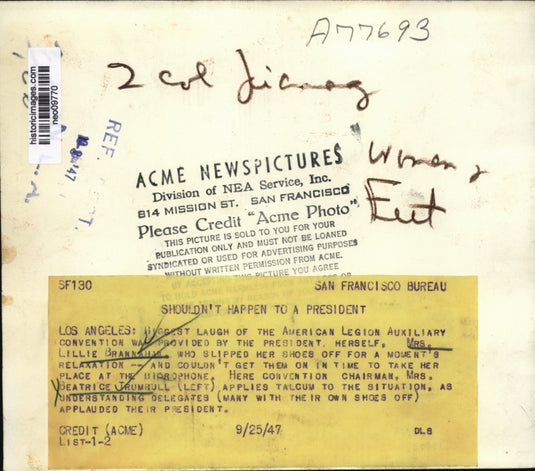 A77693
2 col
historicimages.com
neo09770
REF.
ACME NEWSPICTURES
Division of NEA Service, Inc.
814 MISSION ST. SAN FRANCISCO
Please Credit "Acme Photo"
THIS PICTURE IS SOLD TO YOU FOR YOUR
PUBLICATION ONLY AND MUST NOT BE LOANED
SYNDICATED OR USED FOR ADVERTISING PURPOSES
WITHOUT WRITTEN PERMISSION FROM ACME.
THIS PICTURE YOU AGREE
Women
SF130 SAN FRANCISCO BUREAU
SHOULDN'T HAPPEN TO A PRESIDENT
LOS ANGELES: BIGGEST LAUGH OF THE AMERICAN LEGION AUXILIARY
CONVENTION WAS PROVIDED BY THE PRESIDENT, HERSELF, MRS.
LILLIE WHO SLIPPED HER SHOES OFF FOR A MOMENT'S
RELAXATION -- AND COULDN'T GET THEM ON IN TIME TO TAKE HER
PLACE AT THE MICROPHONE. HERE CONVENTION CHAIRMAN, MRS.
BEATRICE TRUMBULL (LEFT) APPLIES TALCUM TO THE SITUATION, AS
UNDERSTANDING DELEGATES (MANY WITH THEIR OWN SHOES OFF)
APPLAUDED THEIR PRESIDENT.
CREDIT (ACME) 9/25/47 DLS
LIST-1-2